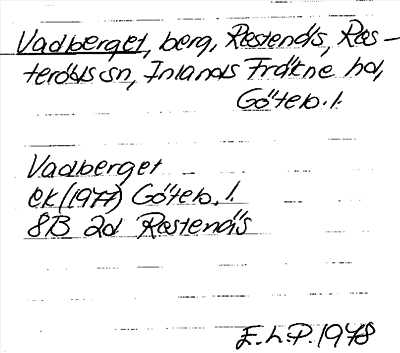 Vadberget, berg, Röstenäs, Rös-
teröds sn, Inlands Fräkne hd,
Göteb. l.
Vadberget
ek (1977) Göteb. l.
8B 2d Röstenäs
E.L.P. 1978